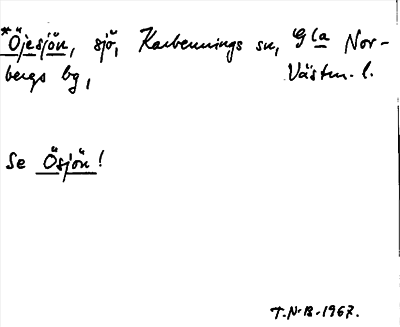 *Öjesjön, sjö, Karbennings sn, Gla Nor-
bergs bg, Västm. l.
Se Ösjön!
T.N-B-1967.